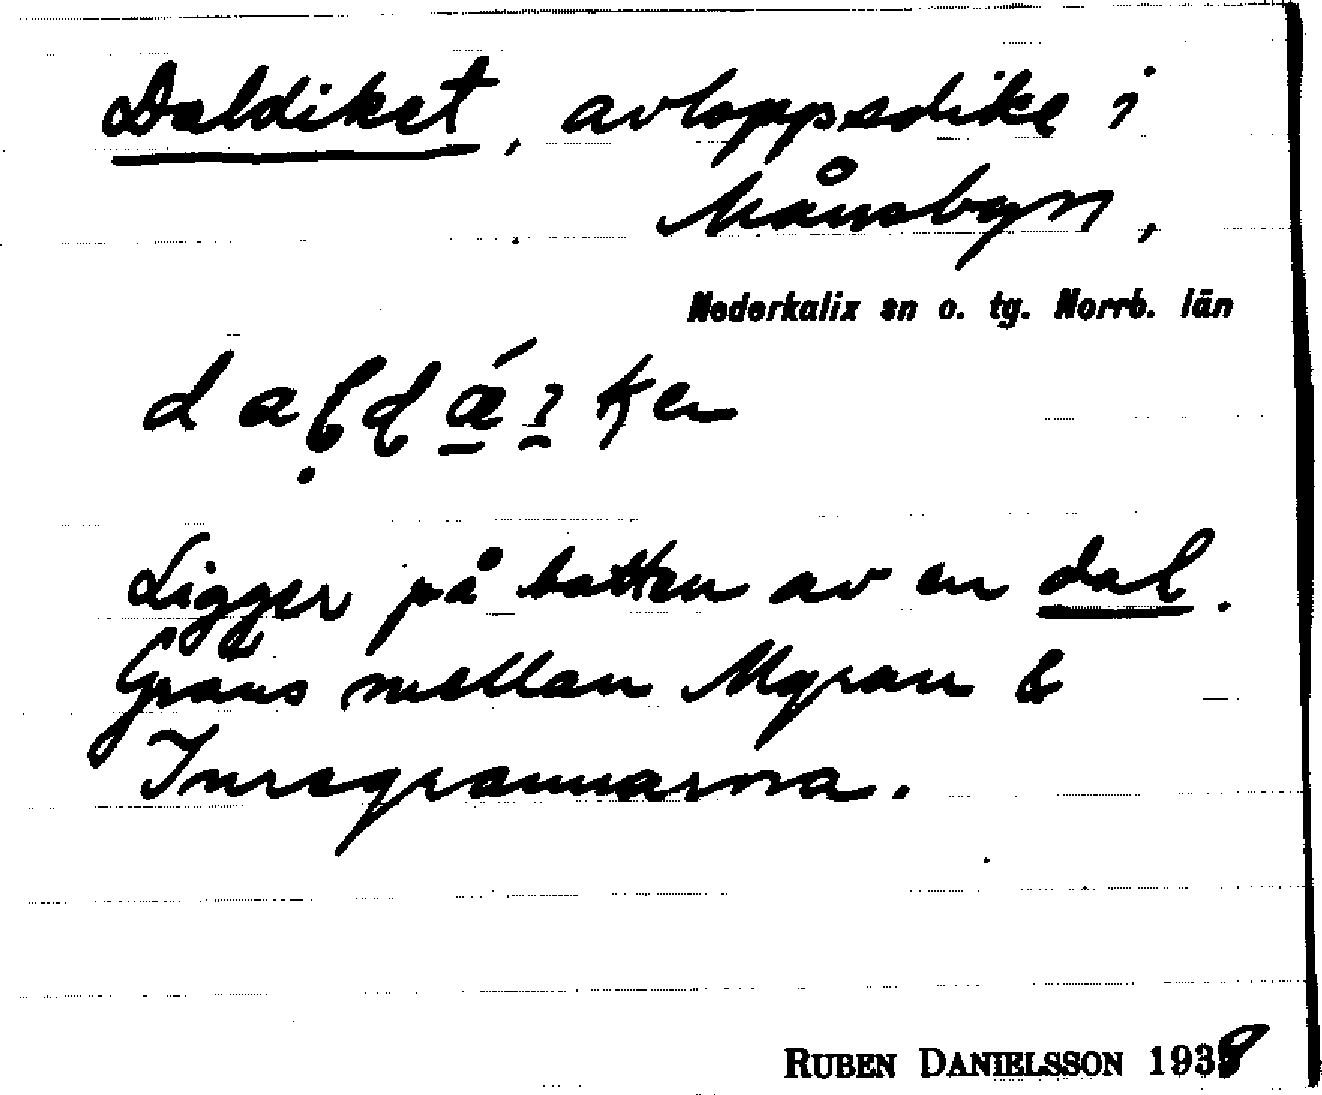 Daldiket, avloppsdike i
Månsbyn,
Nederkalix sn o. tg. Norrb. län
Ligger på botten av en dal.
Gräns mellan Myran &
Inregrannarna.
RUBEN DANIELSSON 1938